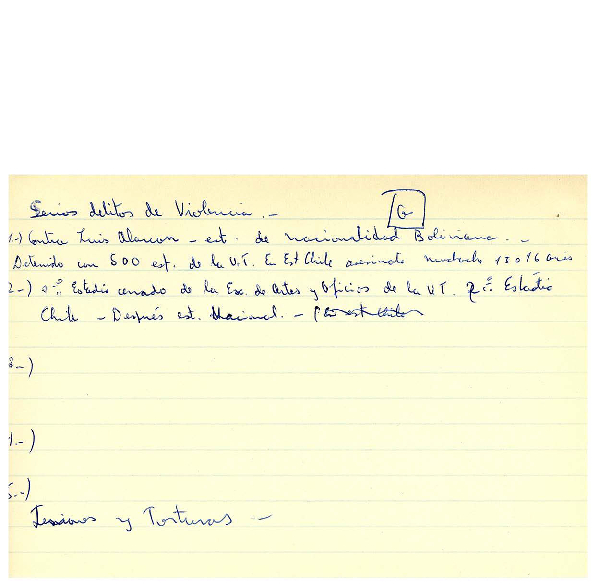 Serios delitos de Violencia.-
G
1.-) Contra Luis Alarcon - est. de nacionalidad Boliviana. -
Detenido con 500 est. de la U.T. En Est Chile asesinato muchacho 15 o 16 años
2-) Estadio cerrado de la Esc. de Artes y Oficios de la U.T. Estadio
Chile - Después est. Nacional. -
3-)
4.-)
5.-)
Lesiones y Torturas -